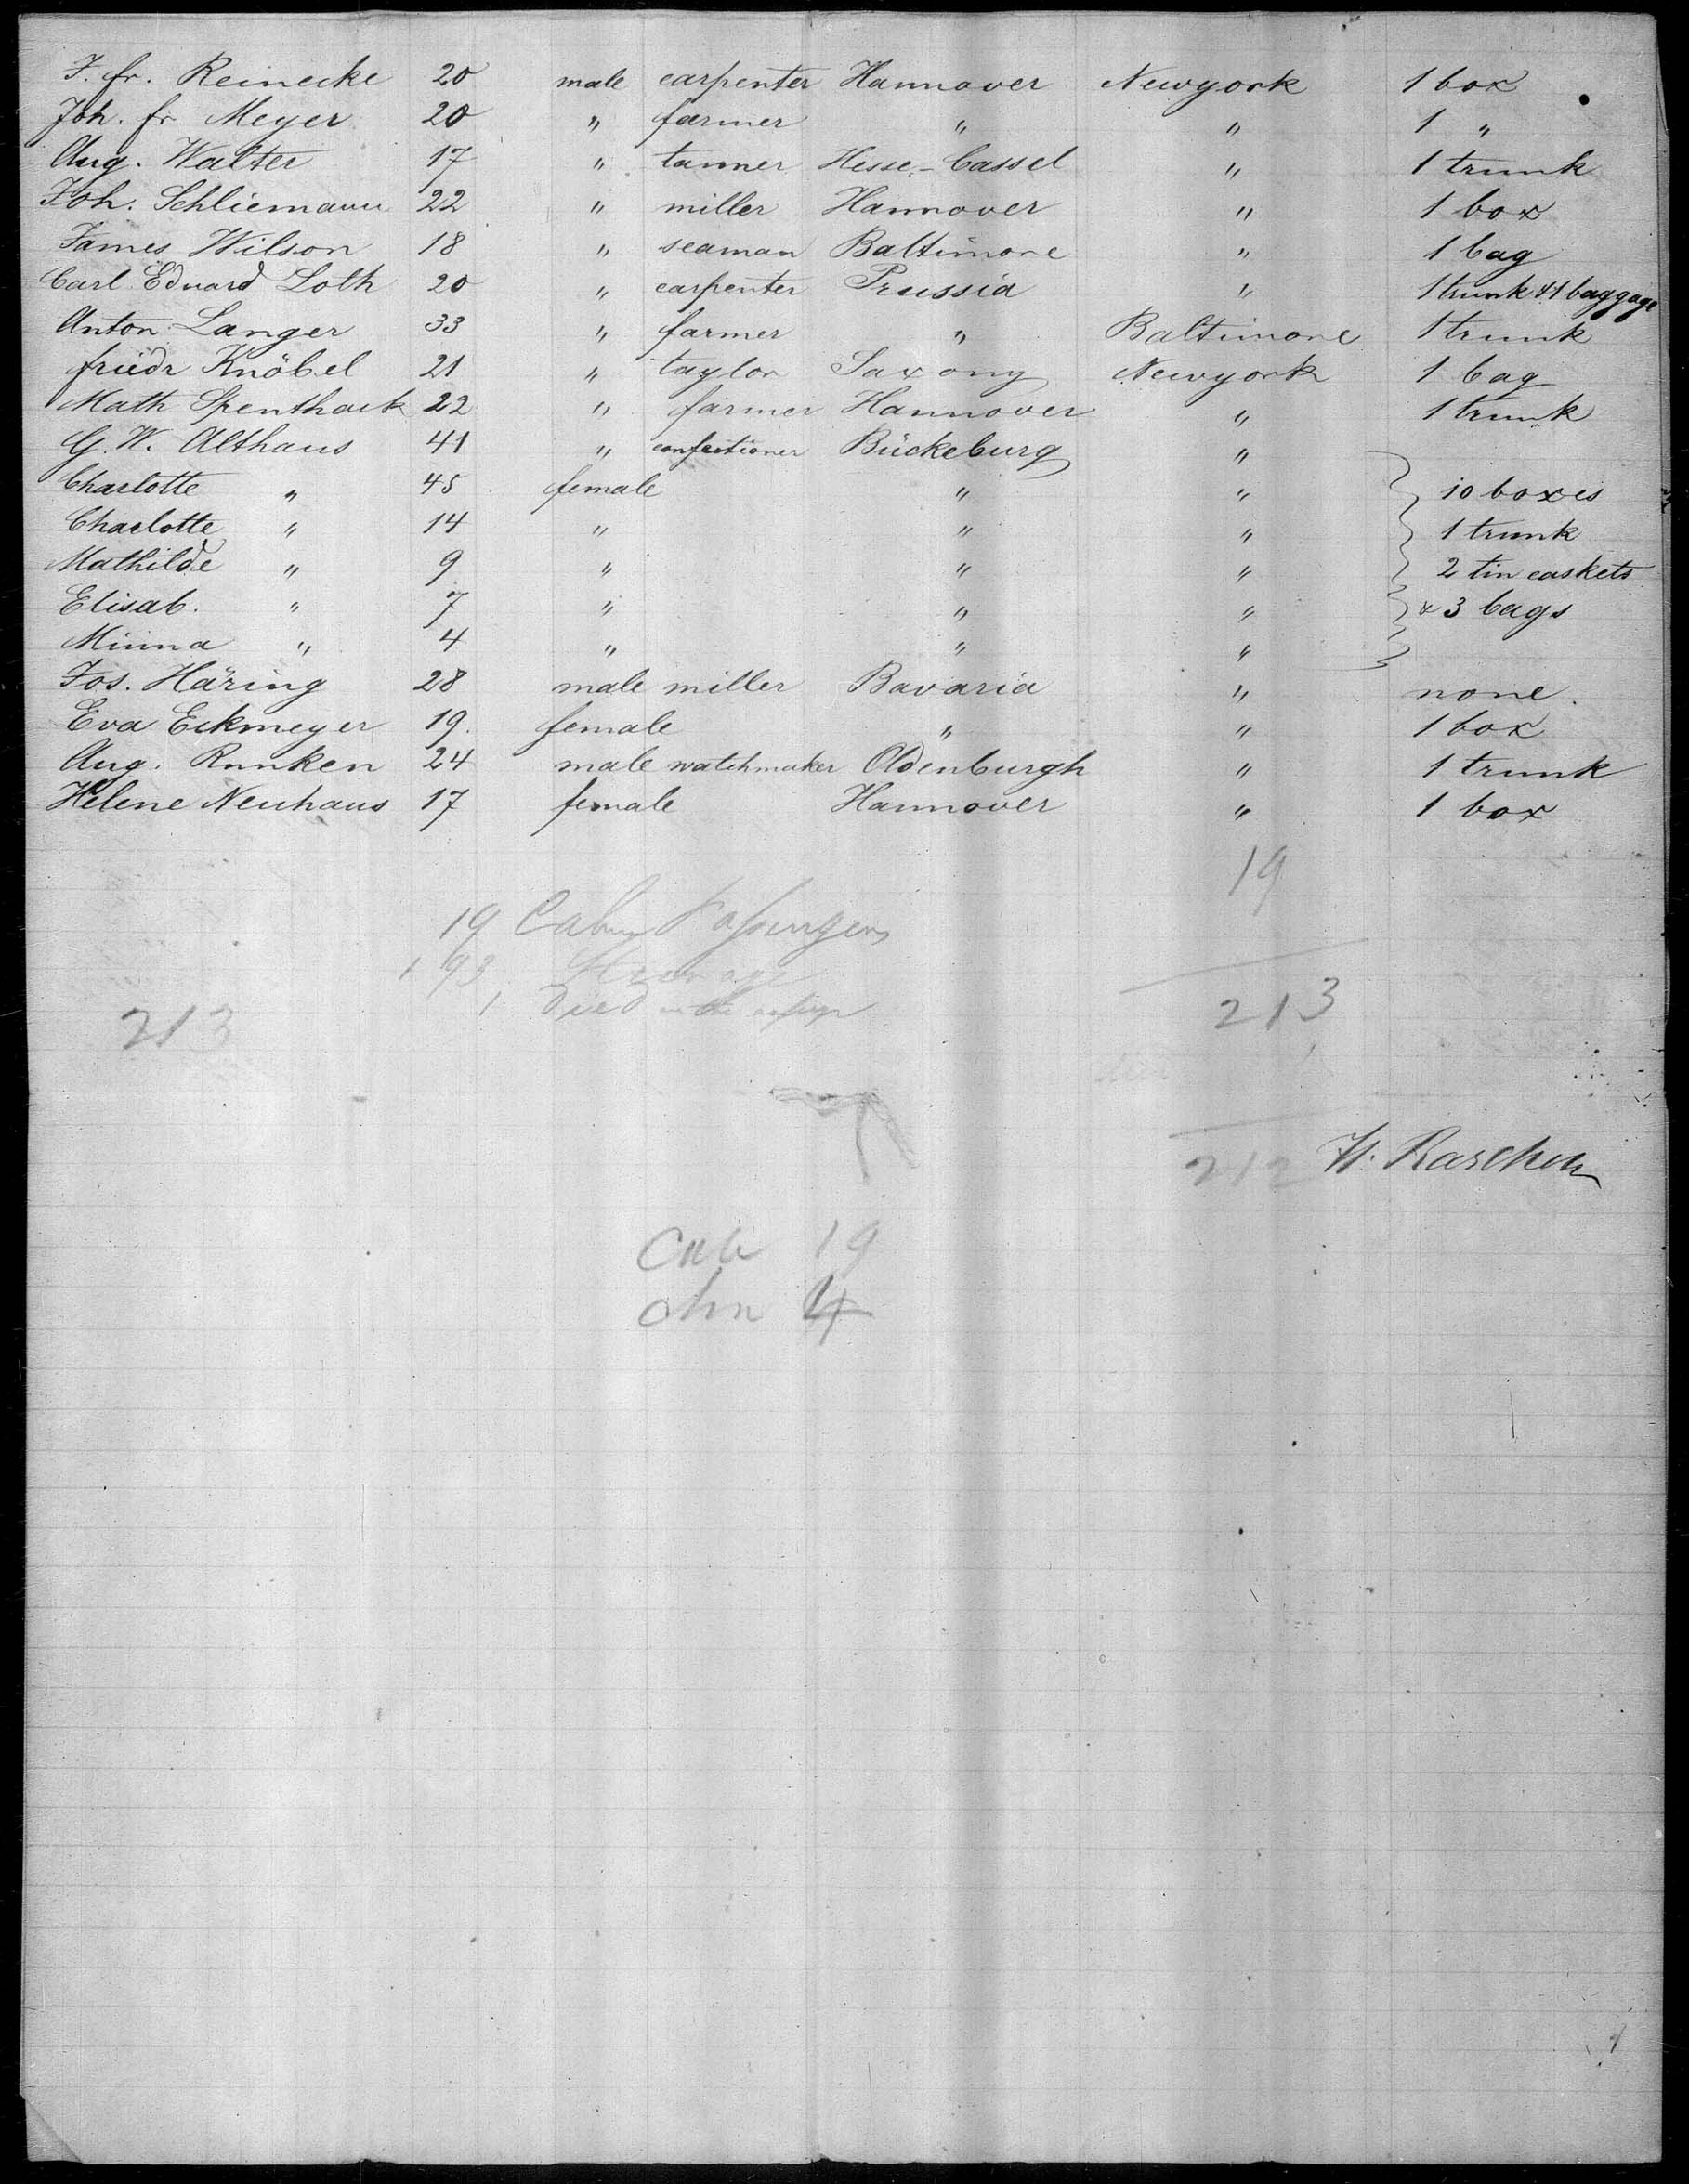 J. fr. Reinecke 20 male carpenter Hannover Newyork 1 box
Joh. fr Meyer 20 " farmer " " 1 "
Aug. Walter 17 " tanner Hesse-Cassel " 1 trunk
Joh. Schliemann 22 " miller Hannover " 1 box
James Wilson 18 " seaman Baltimore " 1 bag
Carl Eduard Loth 20 " carpenter Prussia " 1 trunk & 1 baggage
Anton Langer 33 " farmer " Baltimore 1 trunk
friedr Knöbel 21 " taylor Saxony Newyork 1 bag
Math 22 " farmer Hannover " 1 trunk
G. W. Althaus 41 " confectioner Bückeburg "
Charlotte " 45 female " " 10 boxes
Charlotte " 14 " " " 1 trunk
Mathilde " 9 " " " 2 tin caskets
Elisab. " 7 " " " & 3 bags
Minna " 4 " " "
Jos. Häring 28 male miller Bavaria " none.
Eva Eckmeyer 19. female " " 1 box
Aug. Runken 24 male watchmaker Oldenburgh " 1 trunk
Helene Neuhaus 17 female Hannover " 1 box
19
19 Cabin Passengers
193 Steerage
1 Died on the
213
213
1
212 H. Raschen
Cab 19
4